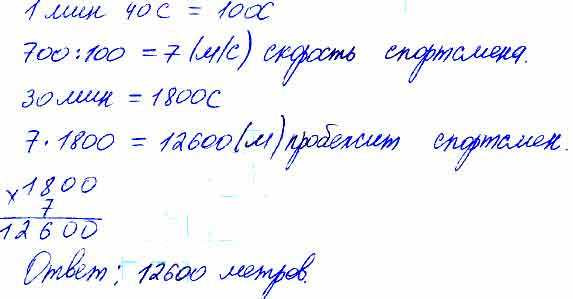 1 мин 40с = 100с
700:100 = 7 (м/с) скорость спортсмена.
30 мин = 1800с
7 · 1800 = 12600 (м) пробежит спортсмен.
× 1800
7
12600
Ответ: 12600 метров.